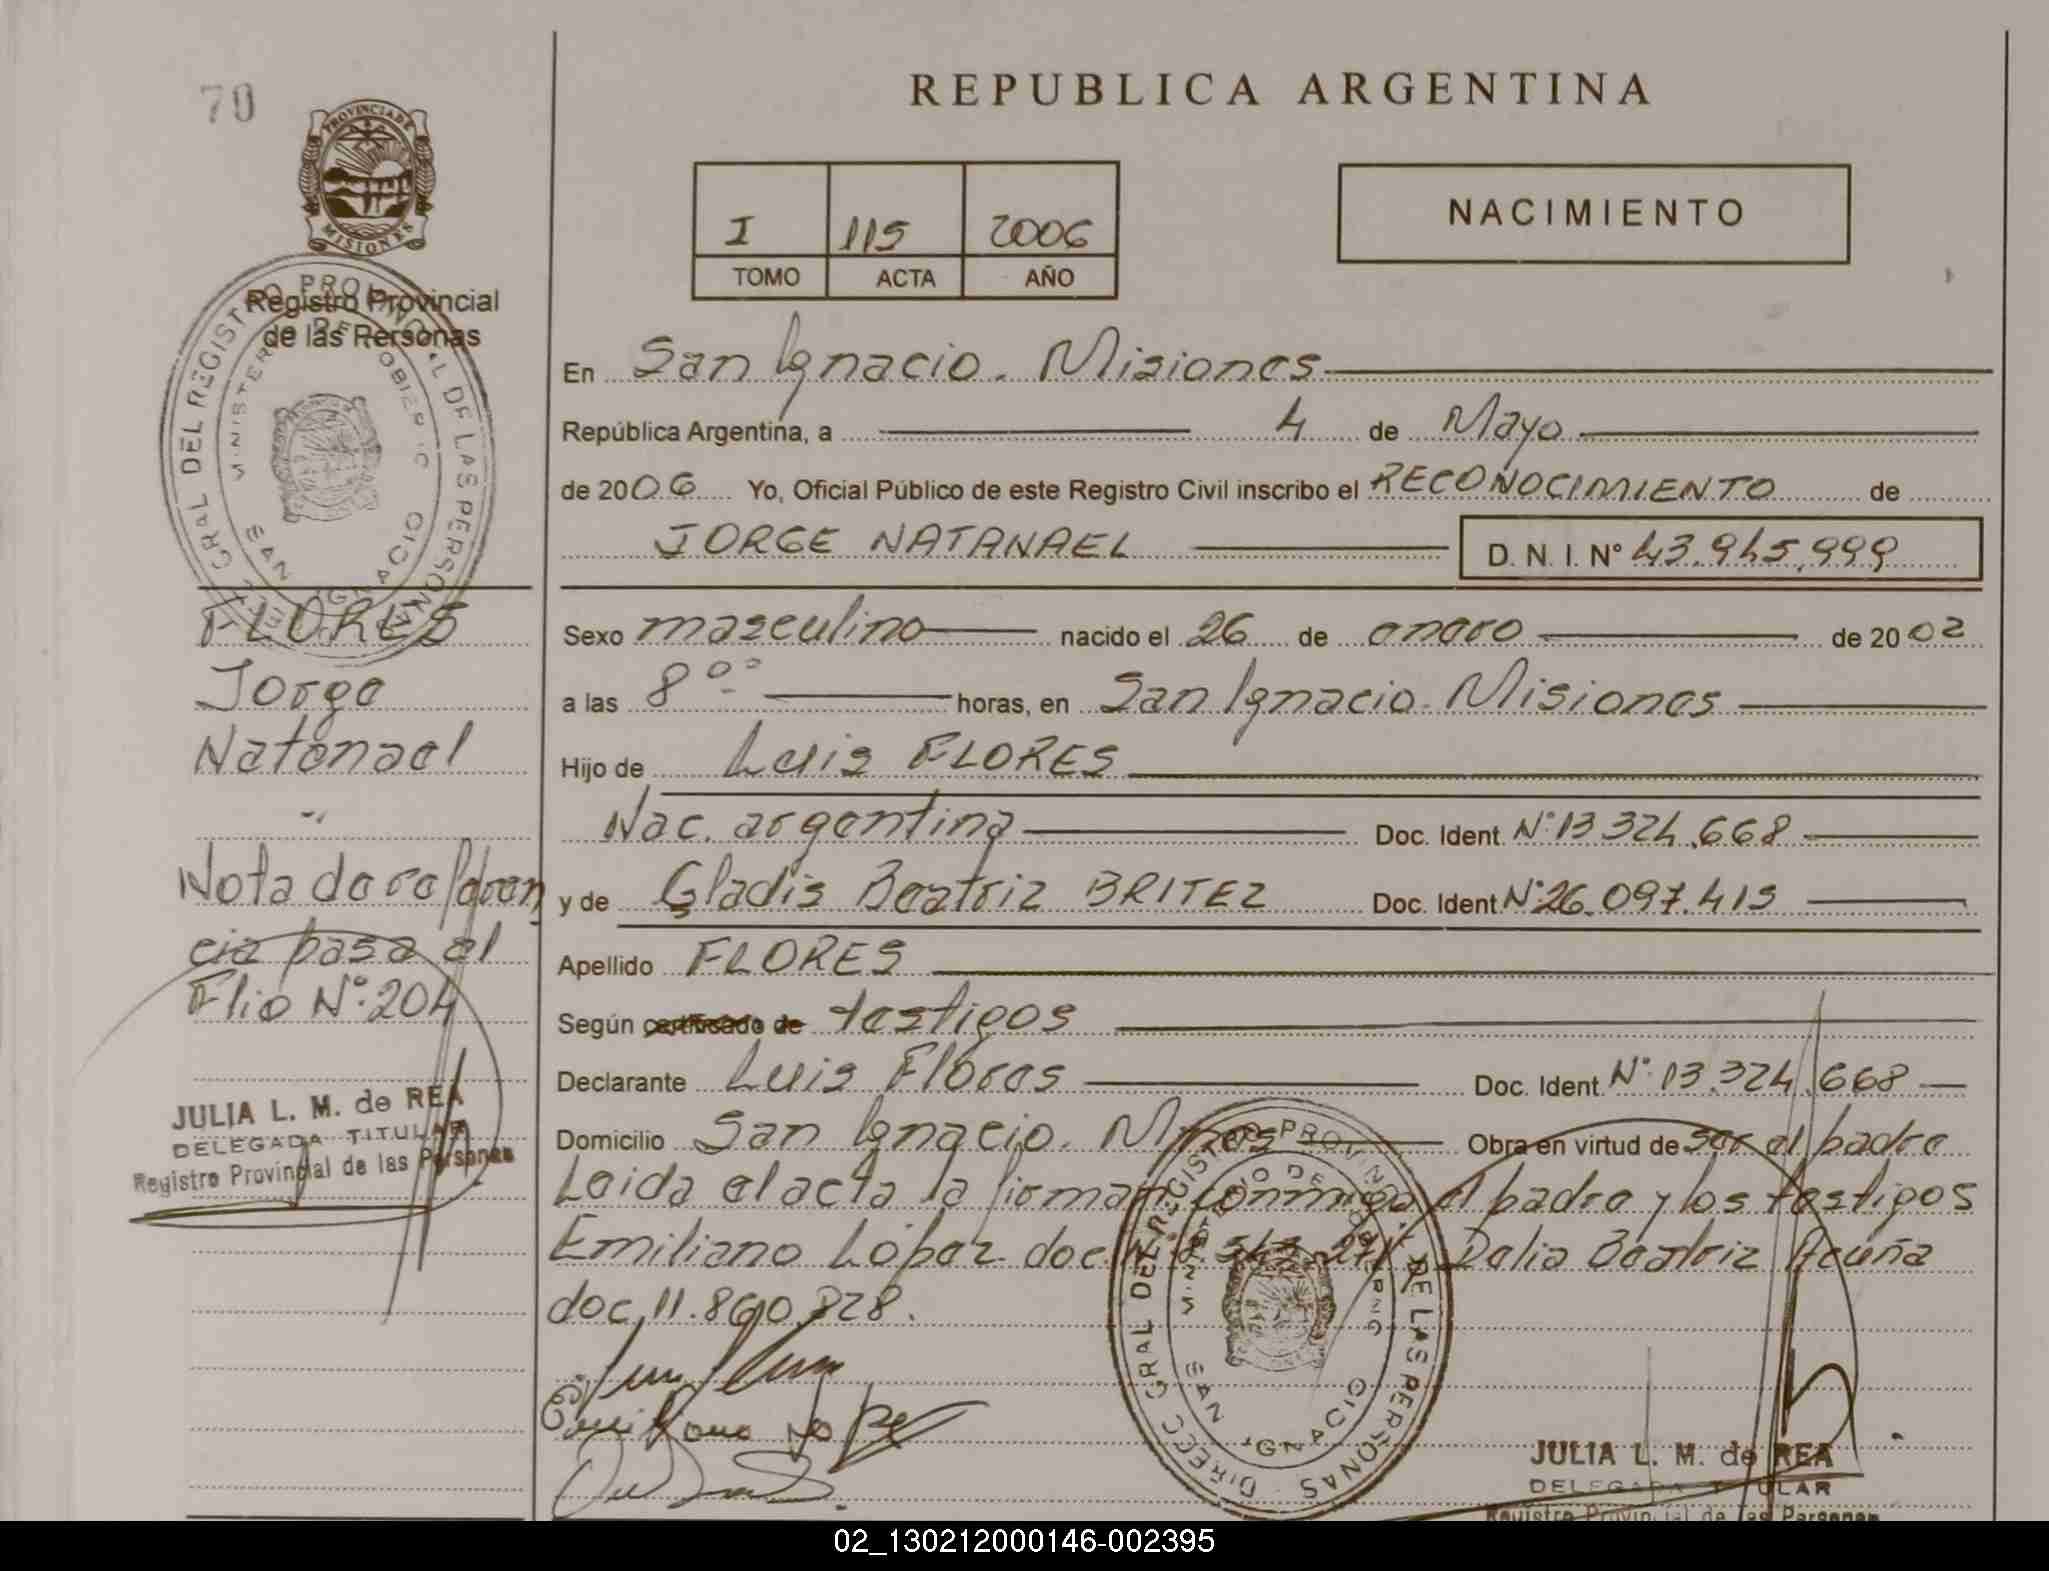 70
REPUBLICA ARGENTINA
PROVINCIA DE
MISIONES
Registro Provincial
de las Personas
I 115 2006
TOMO ACTA AÑO
NACIMIENTO
En San Ignacio. Misiones
República Argentina, a 4 de Mayo
de 2006 Yo, Oficial Público de este Registro Civil inscribo el RECONOCIMIENTO de
JORGE NATANAEL D. N. I. N° 43.945.999
Sexo masculino nacido el 26 de enero de 2002
a las 8°° horas, en San Ignacio. Misiones
Hijo de Luis FLORES
Nac. argentina Doc. Ident. N° 13.324.668
y de Gladis Beatriz BRITEZ Doc. Ident N° 26.097.415
Apellido FLORES
Según certificado de testigos
Declarante Luis Flores Doc. Ident. N° 13.324.668
Domicilio San Ignacio. Mnes Obra en virtud de ser el padre
Leida el acta la firman conmigo el padre y los testigos
Emiliano López doc. Delia Beatriz Acuña
doc. 11.860.828.
Emiliano Lopez
FLORES
Jorge
Natanael
Nota de referen
cia pasa al
Flio N°: 204
JULIA L. M. de REA
DELEGADA TITULAR
Registro Provincial de las Personas
DIREC. GRAL DEL REGISTRO PROVINCIAL DE LAS PERSONAS
MINISTERIO DE GOBIERNO
SAN IGNACIO
DIREC. GRAL DEL REGISTRO PROVINCIAL DE LAS PERSONAS
MINISTERIO DE GOBIERNO
SAN IGNACIO
JULIA L. M. de REA
DELEGADA TITULAR
Registro Provincial de las Personas
02_130212000146-002395